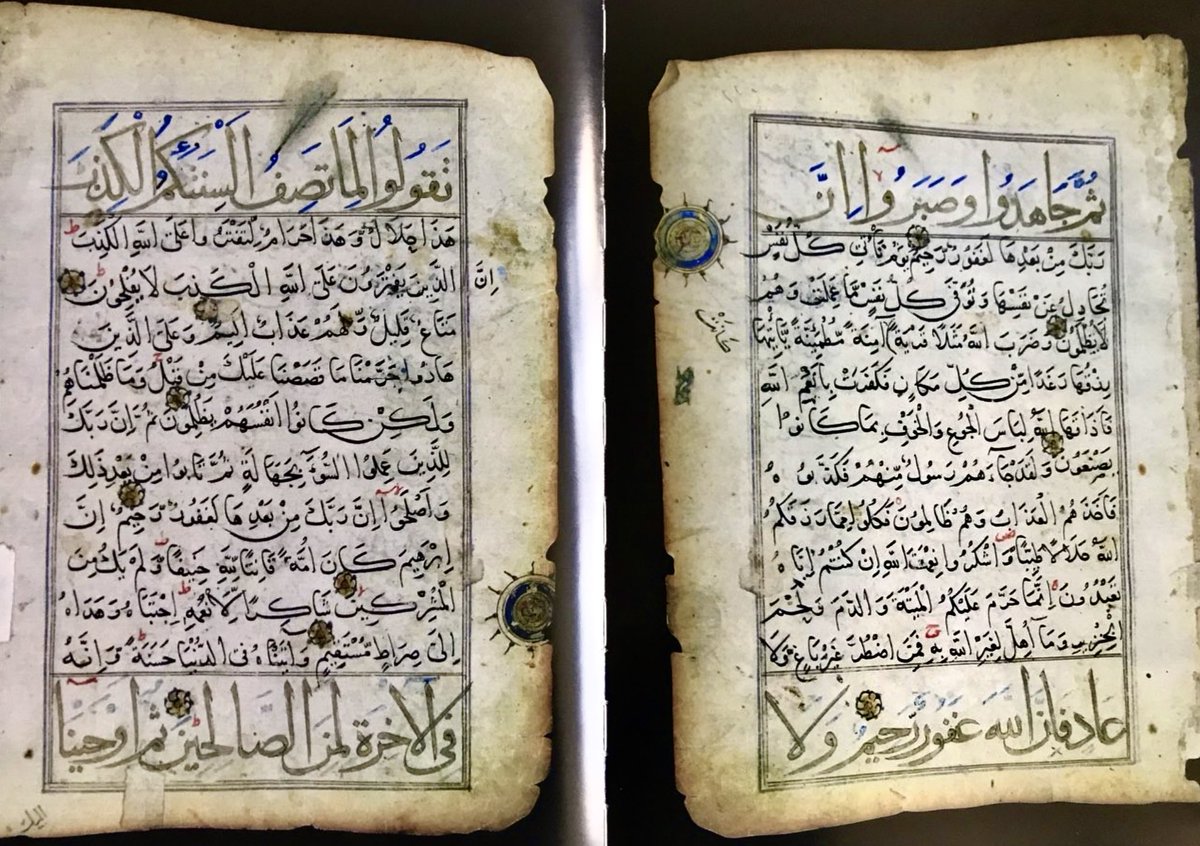 ثم جاهدوا وصبروا إن
ربك من بعدها لغفور رحيم يوم تأتي كل نفس
تجادل عن نفسها وتوفى كل نفس ما عملت وهم
لا يظلمون وضرب الله مثلا قرية آمنة مطمئنة يأتيها
رزقها رغدا من كل مكان فكفرت بأنعم الله
فأذاقها الله لباس الجوع والخوف بما كانوا
يصنعون ولقد جاءهم رسول منهم فكذبوه
فأخذهم العذاب وهم ظالمون فكلوا مما رزقكم
الله حلالا طيبا واشكروا نعمت الله إن كنتم إياه
تعبدون إنما حرم عليكم الميتة والدم ولحم
الخنزير وما أهل لغير الله به فمن اضطر غير باغ ولا
عاد فإن الله غفور رحيم ولا
تقولوا لما تصف ألسنتكم الكذب
هذا حلال وهذا حرام لتفتروا على الله الكذب
إن الذين يفترون على الله الكذب لا يفلحون
متاع قليل ولهم عذاب أليم وعلى الذين
هادوا حرمنا ما قصصنا عليك من قبل وما ظلمناهم
ولكن كانوا أنفسهم يظلمون ثم إن ربك
للذين عملوا السوء بجهالة ثم تابوا من بعد ذلك
وأصلحوا إن ربك من بعدها لغفور رحيم إن
إبرهيم كان أمة قانتا لله حنيفا ولم يك من
المشركين شاكرا لأنعمه اجتباه وهداه
إلى صراط مستقيم وآتيناه في الدنيا حسنة وإنه
في الآخرة لمن الصالحين ثم أوحينا
إليك